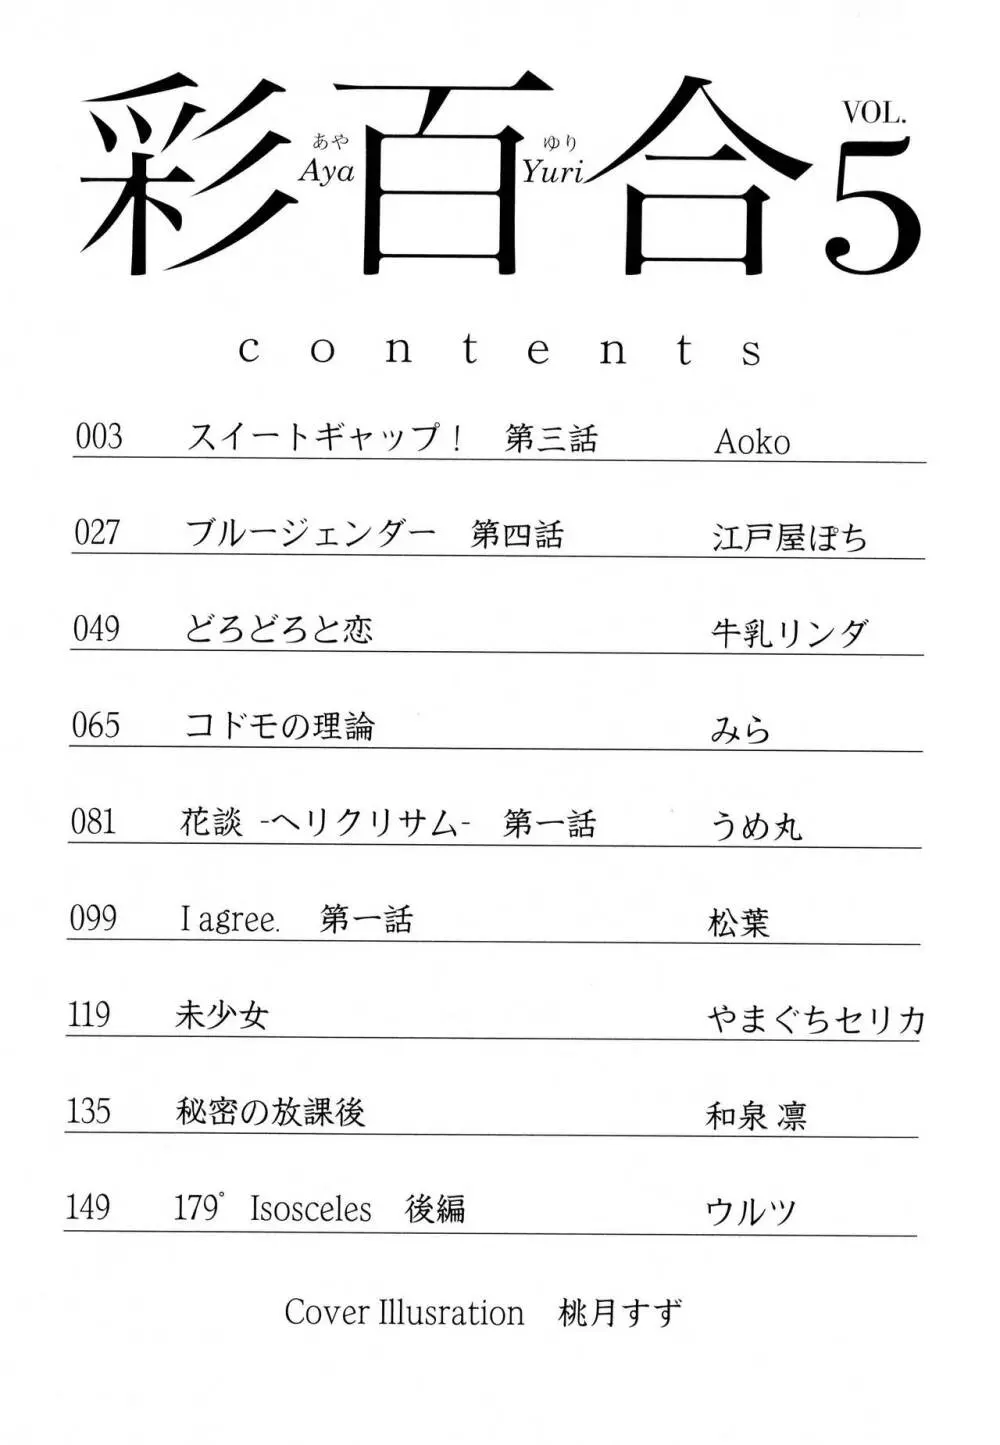 彩百合
あや
Aya
ゆり
Yuri
VOL.
5
contents
003 スイートギャップ！ 第三話 Aoko
027 ブルージェンダー 第四話 江戸屋ぽち
049 どろどろと恋 牛乳リンダ
065 コドモの理論 みら
081 花談 -ヘリクリサム- 第一話 うめ丸
099 I agree. 第一話 松葉
119 未少女 やまぐちセリカ
135 秘密の放課後 和泉 凛
149 179° Isosceles 後編 ウルツ
Cover Illusration 桃月すず